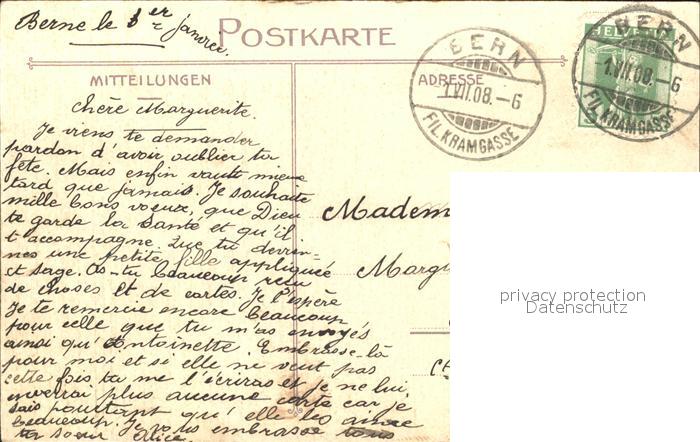 Berne le 1er Janvier.
POSTKARTE
MITTEILUNGEN
ADRESSE
BERN
1.VII.08.-6
FIL.KRAMGASSE
BERN
1.VII.08.-6
FIL.KRAMGASSE
HELVETIA
Chère Marguerite.
Je viens te demander
pardon d'avoir oublier ta
fête. Mais enfin vaut mieux
tard que jamais. Je souhaite
mille bons voeux, que Dieu
te garde la Santé et qu'il
t'accompagne. Que tu devien-
nes une petite fille appliquée
et sage. As-tu beaucoup reçu
de choses et de cartes. Je l'espère
Je te remercie encore beaucoup
pour celle que tu m'as envoyés
ainsi qu'Antoinette. Embrasse-là
pour moi et si elle ne veut pas
cette fois ta me l'écriras et je ne lui
enverrai plus aucune carte car je
sais pourtant qu'elle les aime
beaucoup. Je vous embrasse
ta soeur Alice
Madem
Marg
privacy protection
Datenschutz